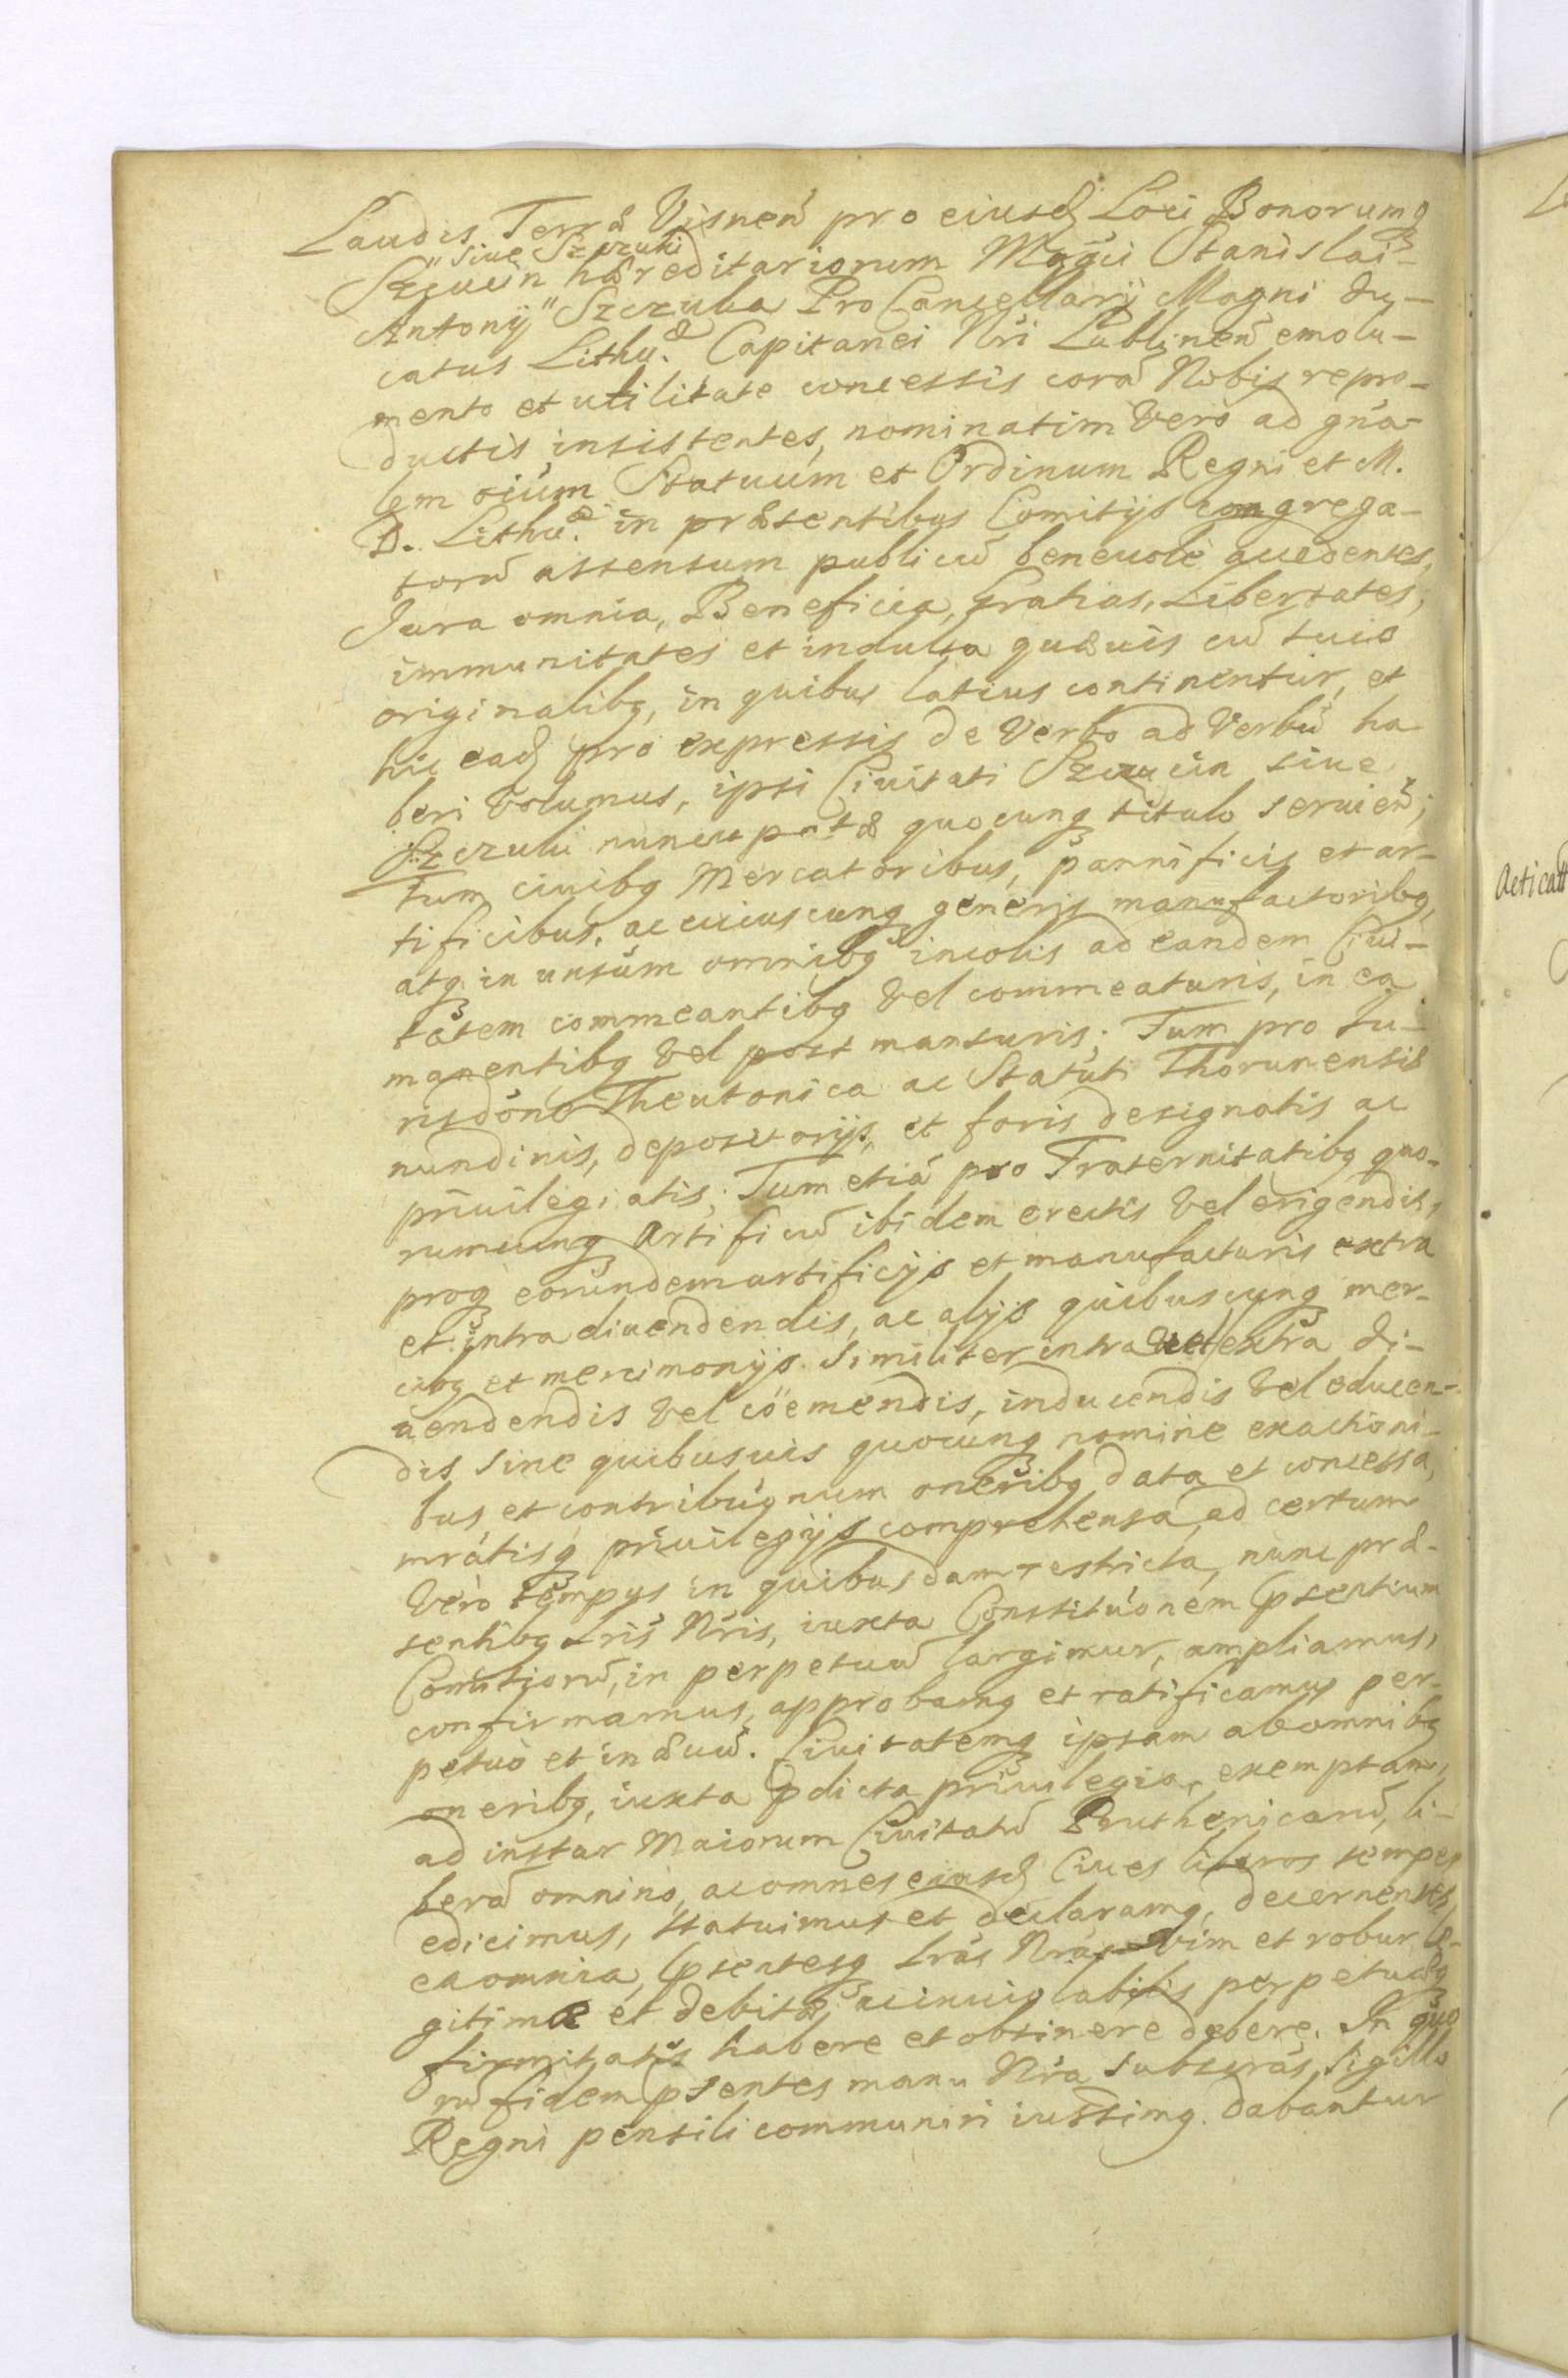 Laudis Terræ Visnen̄ pro eiusd Loci Bonorumq
" siue Szczuki
Szczucin hæreditariorum Magci Stanislai
Antonij " Szczuka ProCancellarij Magni du-
catus Lithu.æ Capitanei Nri Lublinen̄ emolu-
mento et utilitate concessis corā Nobis repro-
ductis insistentes, nominatim Verò ad gn̄a-
lem oium Statuum et Ordinum Regni et M.
D. Lithu.æ in præsentibus Comitijs congrega-
torū assensum publicū beneuolè accedentes,
Jura omnia, Beneficia, Gratias, Libertates,
immunitates et indulta quæuis cū suis
originalibq, in quibus latius continentur, et
hic ead pro expressis de Verbo ad Verbū ha
beri Volumus, ipsi Ciuitati Szczucin siue
Szczuki nuncupatæ quocunq titulo seruien̄;
Tum ciuibq Mercatoribus, pannificis et ar-
tificibus, ac cuiuscunq generis manufactoribq,
atq in unsum omnibq incolis ad eandem Ciui-
tatem commeantibq Vel commeaturis, in ea
manentibq Vel post mansuris; Tum pro Iu-
risdōne Theutonica ac Statuti Thorunensis
nundinis, depositorijs, et foris designatis ac
priuilegiatis; Tum etiā pro Fraternitatibq quo-
rumcunq Artificū ibidem erectis Vel erigendis,
proq eorundem artificijs et manufacturis extra
et intra diuendendis, ac alijs quibuscunq mer-
cibq et mercimonijs. Similiter intra et extra di-
uendendis Vel cöemendis, inducendis Vel educen-
dis sine quibusuis quocunq nomine exactioni-
bus et contribuōnum oneribq data et concessa,
mratisq priuilegijs comprehensa, ad certum
Verò tempus in quibusdam restricta, nunc præ-
sentibq Lris Nris, iuxta Constituōnem psentium
Comitiorū, in perpetuū largimur, ampliamus,
confirmamus, approbamq et ratificamus per-
petuò et in æuū. Ciuitatemq ipsam ab omnibq
oneribq, iuxta pdicta priuilegia, exemptam,
ad instar Maiorum Ciuitatū Pruthenicarū, li-
berā omnino, ac omnes eiusd Ciues liberos semper
edicimus, statuimus et declaramq, decernentes
ea omnia, psentesq Lras Nras vim et robur le-
gitimæ et debitæ, ac inuiolabilis perpetuæq
firmitatis habere et obtinere debere. In quo
rū fidem psentes manu Nra subscras, sigillo
Regni pensili communiri iussimq. Dabantur